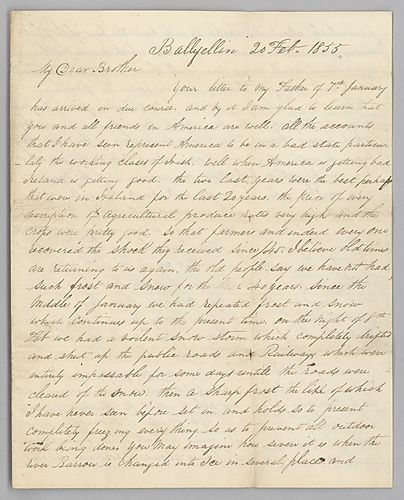 Ballyellin 20 Feb. 1855
My Dear Brother
Your letter to my Father of 7th January
has arrived in due course, and by it I am glad to learn that
you and all friends in America are well. all the accounts
that I have seen represent America to be in a bad state particu
larly the working clases of Irish. well when America is getting bad
Ireland is getting good. the two last years were the best perhaps
that wove in Ireland for the last 20 years. the price of every
description of Agricultural produce rates very high and the
crops were pritty good. So that farmers and indeed every one
recovered the shock they received since 45. I believe old times
are returning to us again. the old people say we have not had
such frost and snow for the last 40 years. Since the
Middle of January we had repeated frost and snow
which continues up to the present time. on the night of
Feb we had a voilent snow storm which completely drifted
and shut up the public roads and Railways which were
entirely impassable for some days untill the roads were
cleared of the snow. then a sharp frost the like of which
I have never seen before set in and holds so to present
completely freezing every thing so as to prevent all outdoor
work being done. you may imagine how severe it is when the
river Barrow is Changed into Ice in several places and